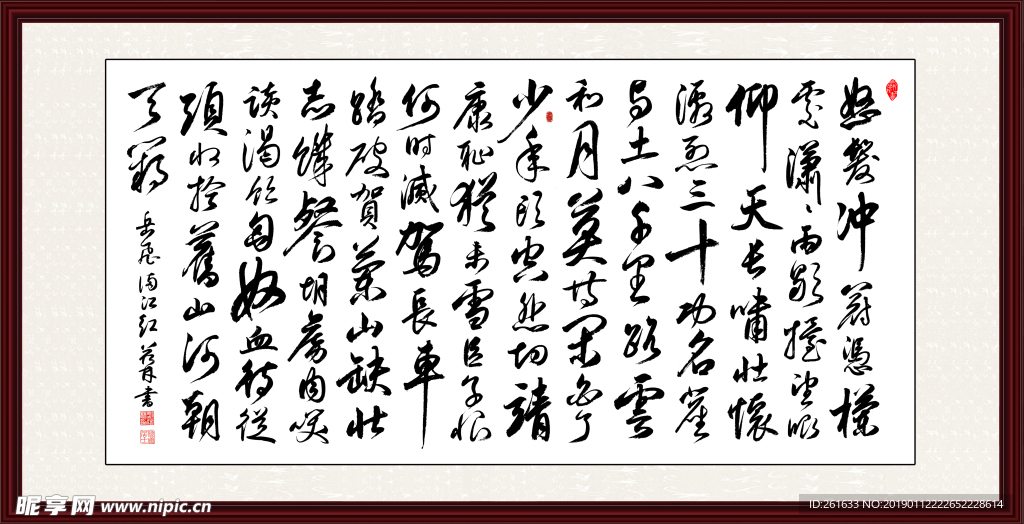 怒髮沖冠憑欄
處瀟瀟雨歇擡望眼
仰天長嘯壯懷
激烈三十功名塵
与土八千里路雲
和月莫等閑白了
少年頭空悲切靖
康恥猶未雪臣子恨
何時滅駕長車
踏破賀蘭山缺壯
志饑餐胡虜肉笑
談渴飲匈奴血待從
頭收拾舊山河朝
天闕
岳飛滿江紅 書
昵享网 www.nipic.cn
ID:261633 NO:20190112222652228614